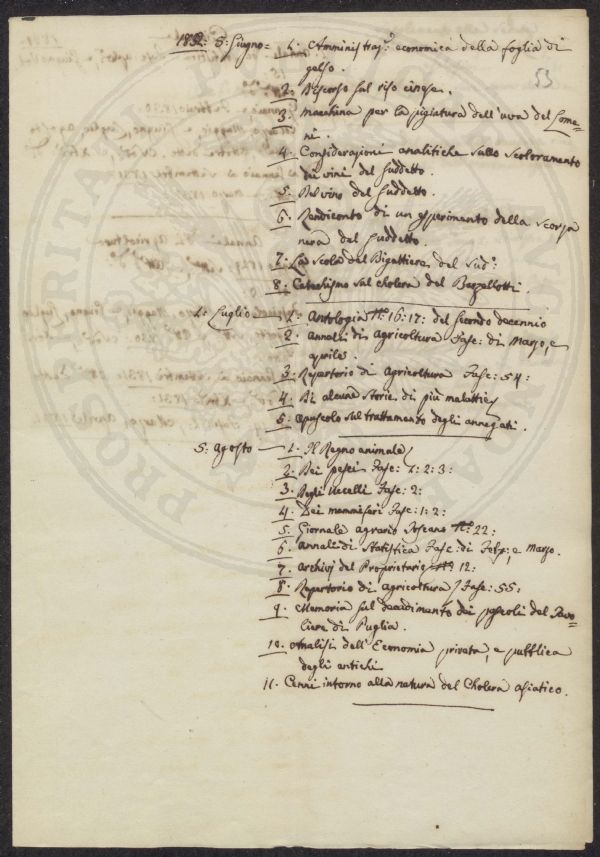 53
1832: 5: Giugno = 1. Amministraz.e economica della foglia di
gelso.
2. Discorso sul riso cinese.
3. Macchina per la pigiatura dell'uva del Lome=
ni.
4. Considerazioni analitiche sullo scoloramento
dei vini del suddetto.
5. Del vino del suddetto.
6. Rendiconto di un esperimento della scorza
nera del suddetto.
7. La Scola del Bigattiere del Sud.o
8. Catechismo sul cholera del Barzellotti.
1: Luglio 1. Antologia N.o 16: 17: del secondo decennio
2. Annali di Agricoltura Fasc: di Marzo, e
aprile.
3. Repertorio di Agricoltura Fasc: 54:
4. Di alcune storie di più malattie
5. Opuscolo sul trattamento degli annegati.
5: Agosto 1. Il Regno animale
2. Dei pesci Fasc: 1: 2: 3:
3. Degli Uccelli Fasc: 2:
4. Dei mammiferi Fasc: 1: 2:
5. Giornale agrario Toscano N.o 22:
6. Annali di Statistica Fasc: di Feb., e Marzo.
7. Archivj del Proprietario N.o 12:
8. Repertorio di Agricoltura Fasc: 55:
9. Memoria sul decadimento dei pascoli del Tavo=
liere di Puglia.
10. Analisi dell'Economia privata, e pubblica
degli antichi
11. Cenni intorno alla natura del Cholera asiatico.